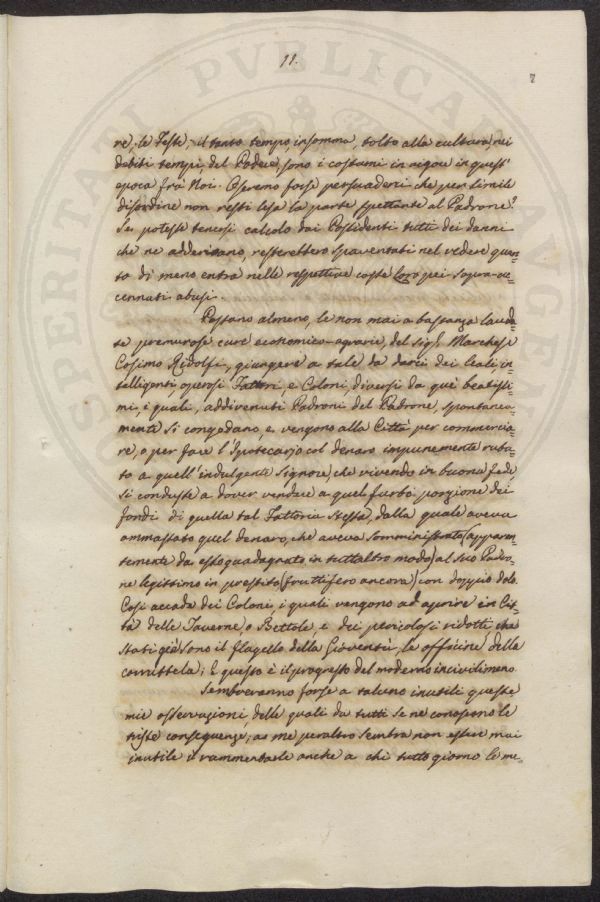 11.
7
re, le Feste, il tanto tempo, insomma, tolto alla cultura, nei
debiti tempi, del Podere, sono i costumi in vigore in quest'
epoca frà Noi. Oseremo forse persuaderci che per simile
disordine non resti lesa la parte spettante al Padrone?
Se potesse tenersi calcolo dai Possidenti tutti dei danni
che ne adderivano, resterebbero spaventati nel vedere quan=
to di meno entra nelle respettive casse Loro pei sopra-ac=
cennati abusi.
Possano almeno, le non mai a bastanza lauda=
te premurose cure economico-agrarie, del Sig.r Marchese
Cosimo Ridolfi, giungere a tale da darci dei leali in=
telligenti, operosi Fattori, e Coloni, diversi da quei beatissi=
mi, i quali, addivenuti Padroni del Padrone, spontanea=
mente si congedano, e vengono alla Città per commercia=
re, o per fare l'Ipotecario col denaro impunemente ruba=
to a quell'indulgente Signore, che vivendo in buona fede
si condusse a dover vendere a quel furbo porzione dei
fondi di quella tal Fattoria stessa, dalla quale aveva
ammassato quel denaro, che aveva somministrato (apparen=
temente da esso guadagnato in tutt'altro modo) al suo Padro=
ne legittimo in prestito (fruttifero ancora) con doppio dolo.
Così accade dei Coloni, i quali vengono ad aprire in Cit=
tà delle Taverne, o Bettole, e dei pericolosi ridotti, che
stati già sono il flagello della Gioventù, le officine della
corruttela; E questo è il progresso del moderno incivilimento.
Sembreranno forse a taluno inutili queste
mie osservazioni, delle quali da tutti se ne conoscono le
triste conseguenze; a me peraltro sembra non essere mai
inutile il rammentarle anche a chi tutto giorno le me=